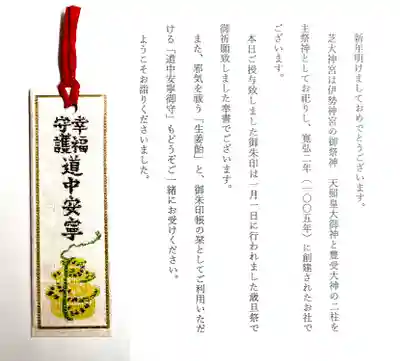 新年明けましておめでとうございます。
芝大神宮は伊勢神宮の御祭神　天照皇大御神と豊受大神の二社を
主祭神としてお祀りし、寛弘二年（一〇〇五年）に創建されたお社で
ございます。
本日ご授与致しました御朱印は一月一日に行われました歳旦祭で
御祈願致しました奉書でございます。
また、邪気を祓う「生姜飴」と、御朱印帳の栞としてご利用いただ
ける「道中安寧御守」もどうぞご一緒にお受けください。
ようこそお詣りくださいました。
幸福
守護
道中安寧